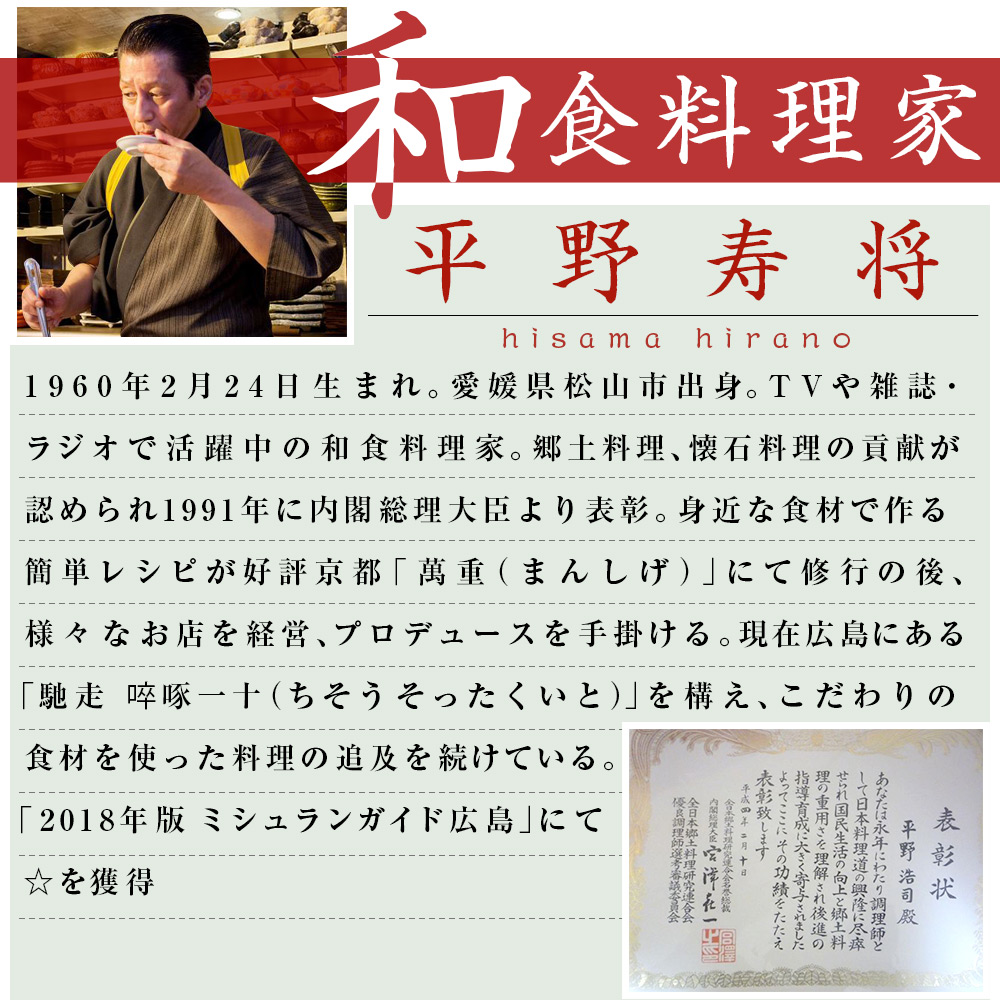 和食料理家
平野寿将
hisama hirano
1960年2月24日生まれ。愛媛県松山市出身。TVや雑誌・
ラジオで活躍中の和食料理家。郷土料理、懐石料理の貢献が
認められ1991年に内閣総理大臣より表彰。身近な食材で作る
簡単レシピが好評京都「萬重(まんしげ)」にて修行の後、
様々なお店を経営、プロデュースを手掛ける。現在広島にある
「馳走 啐啄一十(ちそうそったくいと)」を構え、こだわりの
食材を使った料理の追及を続けている。
「2018年版 ミシュランガイド広島」にて
☆を獲得
表彰状
平野浩司殿
あなたは永年にわたり調理師と
して日本料理道の興隆に尽瘁
せられ国民生活の向上と郷土料
理の重用さを理解され後進の
指導育成に大きく寄与されました
よってここにその功績をたたえ
表彰致します
平成四年二月十日
全日本郷土料理研究連合会名誉総裁
内閣総理大臣 宮澤喜一
全日本郷土料理研究連合会
優良調理師選考審議委員会